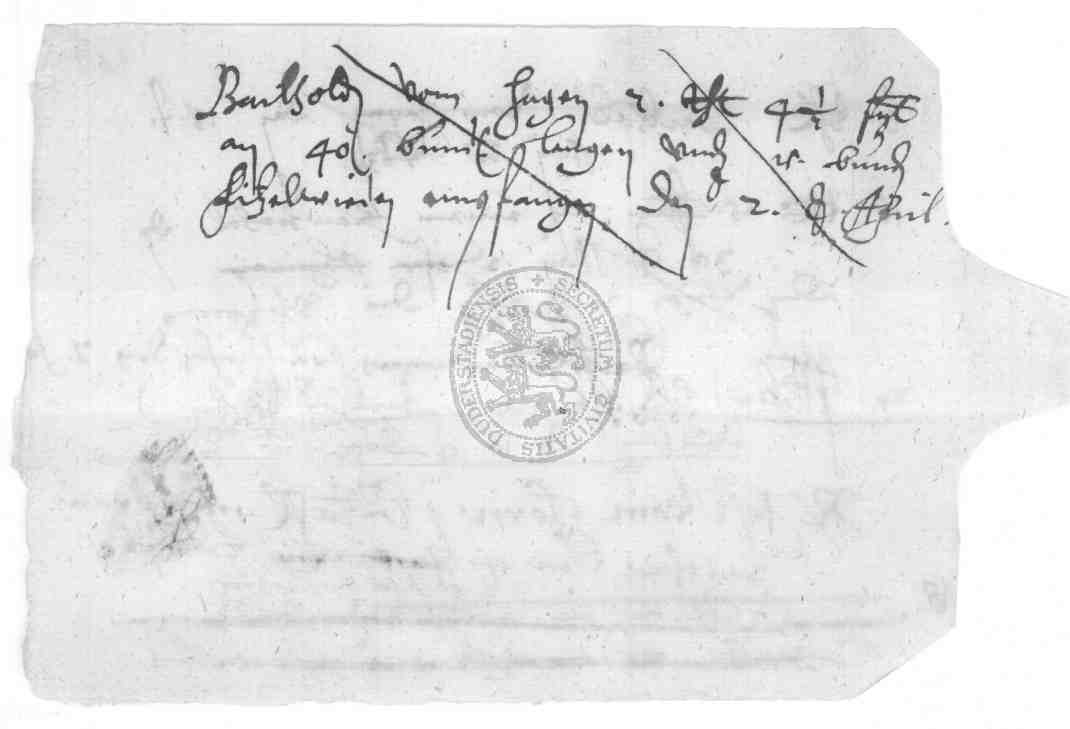 Barthold vom Hagen 2. 4 1/2
an 40. bundt langen vnd 15. bundt
hitzelwieden empfangen den 2. April.
SECRETUM CIVITATIS DUDERSTADIENSIS